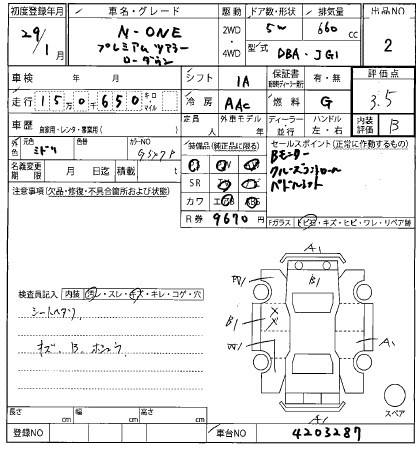 初度登録年月 車名・グレード 駆動 ドア数・形状 排気量 出品NO
29/1月 N-ONE 2WD・4WD 5W 660cc 2
プレミアム ツアラー
ローダウン 型式 DBA-JG1
車検 年 月 シフト IA 保証書 有・無 評価点
走行 15万0千650 キロ・マイル 冷房 AAC 燃料 G 3.5
車歴 自家用・レンタ・事業用( ) 定員 人 外車モデル 年 ディーラー 並行 ハンドル 左・右 内装評価 B
外色 元色 ミドリ 色替 カラーNO
名義変更期限 月 日迄 積載 t
装備品(純正品に限る)
SR
カワ エアB ABS
R券 9670円
セールスポイント(正常に動作するもの)
Bモニター
クルーズコントロール
パドルシフト
注意事項(欠品・修復・不具合箇所および状態)
Fガラス トビ石・キズ・ヒビ・ワレ・リペア跡
A1
B1
W1
B1
W1
A1
A1
スペア
検査員記入 内装 汚レ・スレ・キズ・キレ・コゲ・穴
シートヘタリ
キズ、B、ホシュウ
長さ cm 幅 cm 高さ cm
登録NO 車台NO 4203287